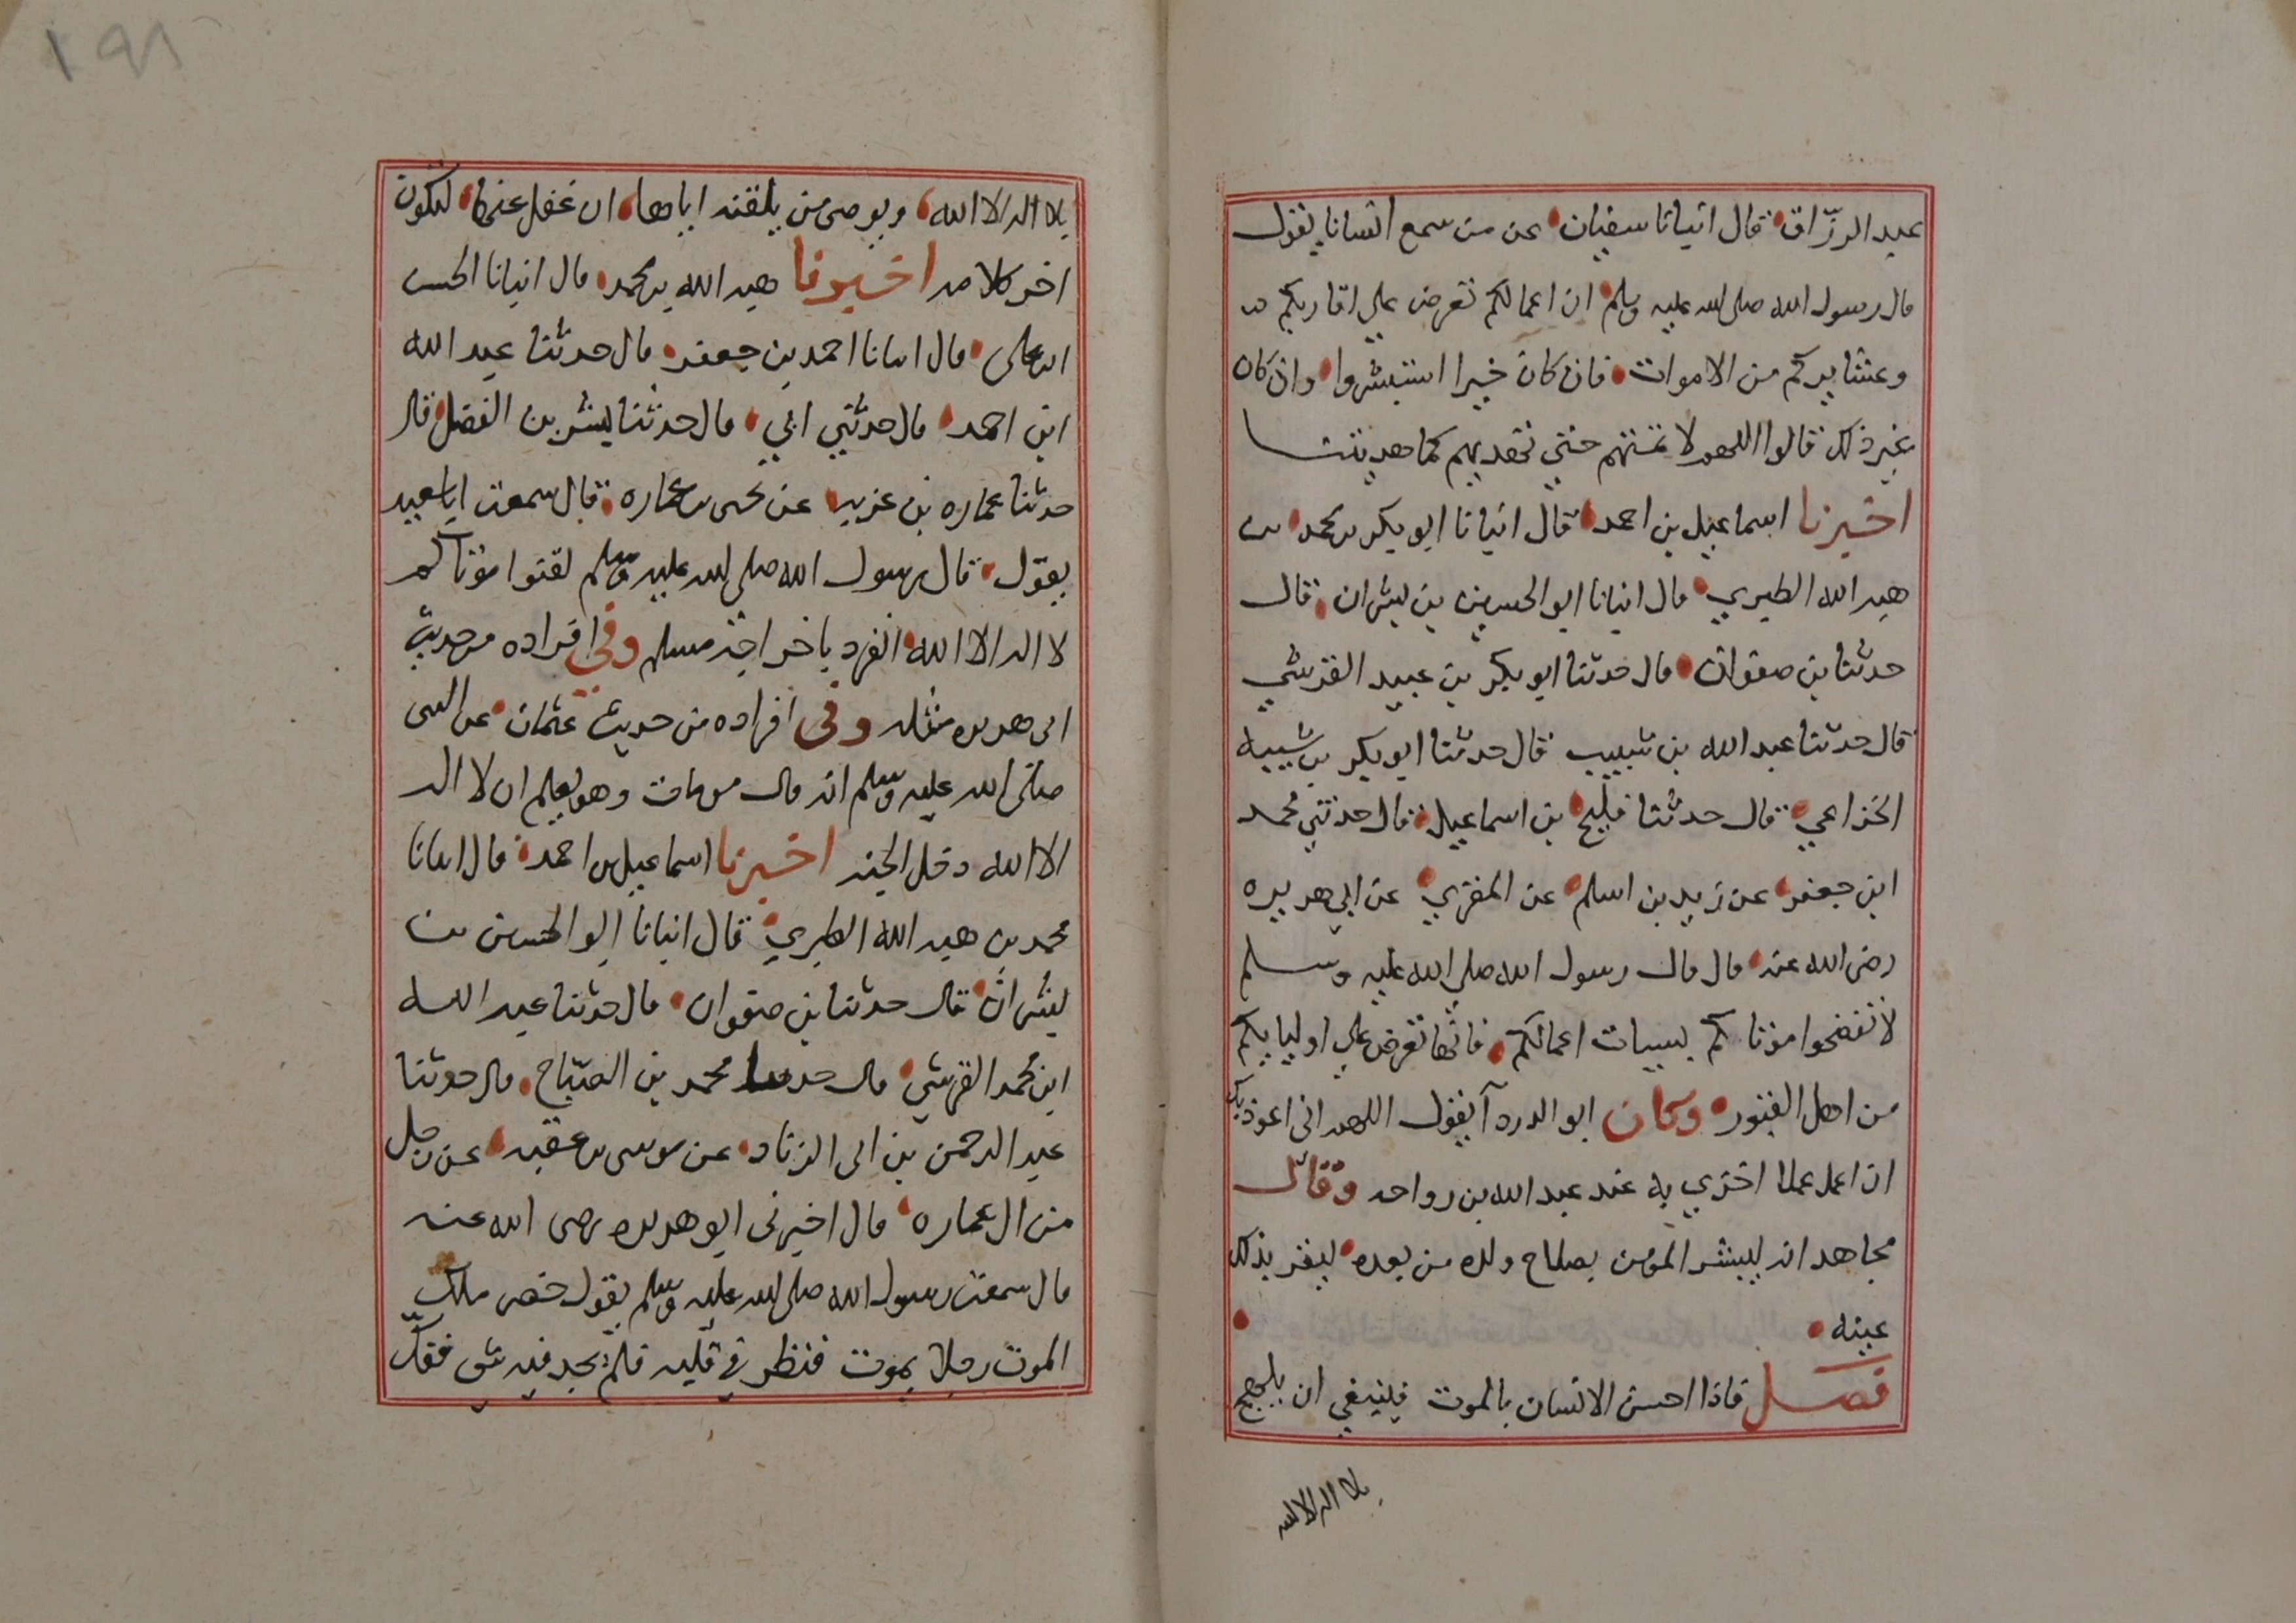 عبد الرزّاق قال انبانا سفيان عن من سمع انسانا يقول
قال رسول الله صلى الله عليه وسلم ان اعمالكم تعرض على اقاربكم
وعشايركم من الاموات فان كان خيرا استبشروا وان كان
بغير ذلك قالوا اللهم لا تمتهم حتي تهديهم كما هديتنا
اخبرنا اسماعيل بن احمد قال انبانا ابو بكر بن محمد بن
هبه الله الطبري قال انبانا ابو الحسين بن بشران قال
حدثنا بن صفوان قال حدثنا ابو بكر بن عبيد القرشي
قال حدثنا عبد الله بن شبيب قال حدثنا ابو بكر بن شيبه
الخزاعي قال حدثنا فليح بن اسماعيل قال حدثني محمد
ابن جعفر عن زيد بن اسلم عن المقري عن ابي هريره
رضى الله عنه قال قال رسول الله صلى الله عليه وسلم
لا تفضحوا موتاكم بسيات اعمالكم فانها تعرض علي اوليايكم
من اهل القبور وكان ابو الدردآ يقول اللهم انى اعوذ بك
ان اعمل عملا اخزي به عند عبد الله بن رواحه وقال
مجاهد انه ليبشر المومن بصلاح ولده من بعده ليقر بذلك
عينه
فصل فاذا احس الانسان بالموت فينبغي ان يلهج
بلا اله الا الله
بلا اله الا الله ويوصى من يلقنه اياها ان غفل عنها لتكون
اخر كلامه اخبرنا هبه الله بن محمد قال انبانا الحسن
ابن على قال انبانا احمد بن جعفر قال حدثنا عبد الله
ابن احمد قال حدثني ابي قال حدثنا بشر بن الفضل قال
حدثنا عماره بن غزيه عن يحيى بن عماره قال سمعت ابا سعيد
يقول قال رسول الله صلى الله عليه وسلم لقنوا موتاكم
لا اله الا الله انفرد باخراجه مسلم وفي افراده من حديث
ابى هريره مثله وفى افراده من حديث عثمان عن النبى
صلى الله عليه وسلم انه قال من مات وهو يعلم ان لا اله
الا الله دخل الجنه اخبرنا اسماعيل بن احمد قال انبانا
محمد بن هبه الله الطبري قال انبانا ابو الحسين بن
بشران قال حدثنا بن صفوان قال حدثنا عبد الله
ابن محمد القرشي قال حدثنا محمد بن الصبّاح قال حدثنا
عبد الرحمن بن ابى الزناد عن موسى بن عقبه عن رجل
من ال عماره قال اخبرنى ابو هريره رضى الله عنه
قال سمعت رسول الله صلى الله عليه وسلم يقول حضر ملك
الموت رجلا يموت فنظر في قلبه فلم يجد فيه شى ففك